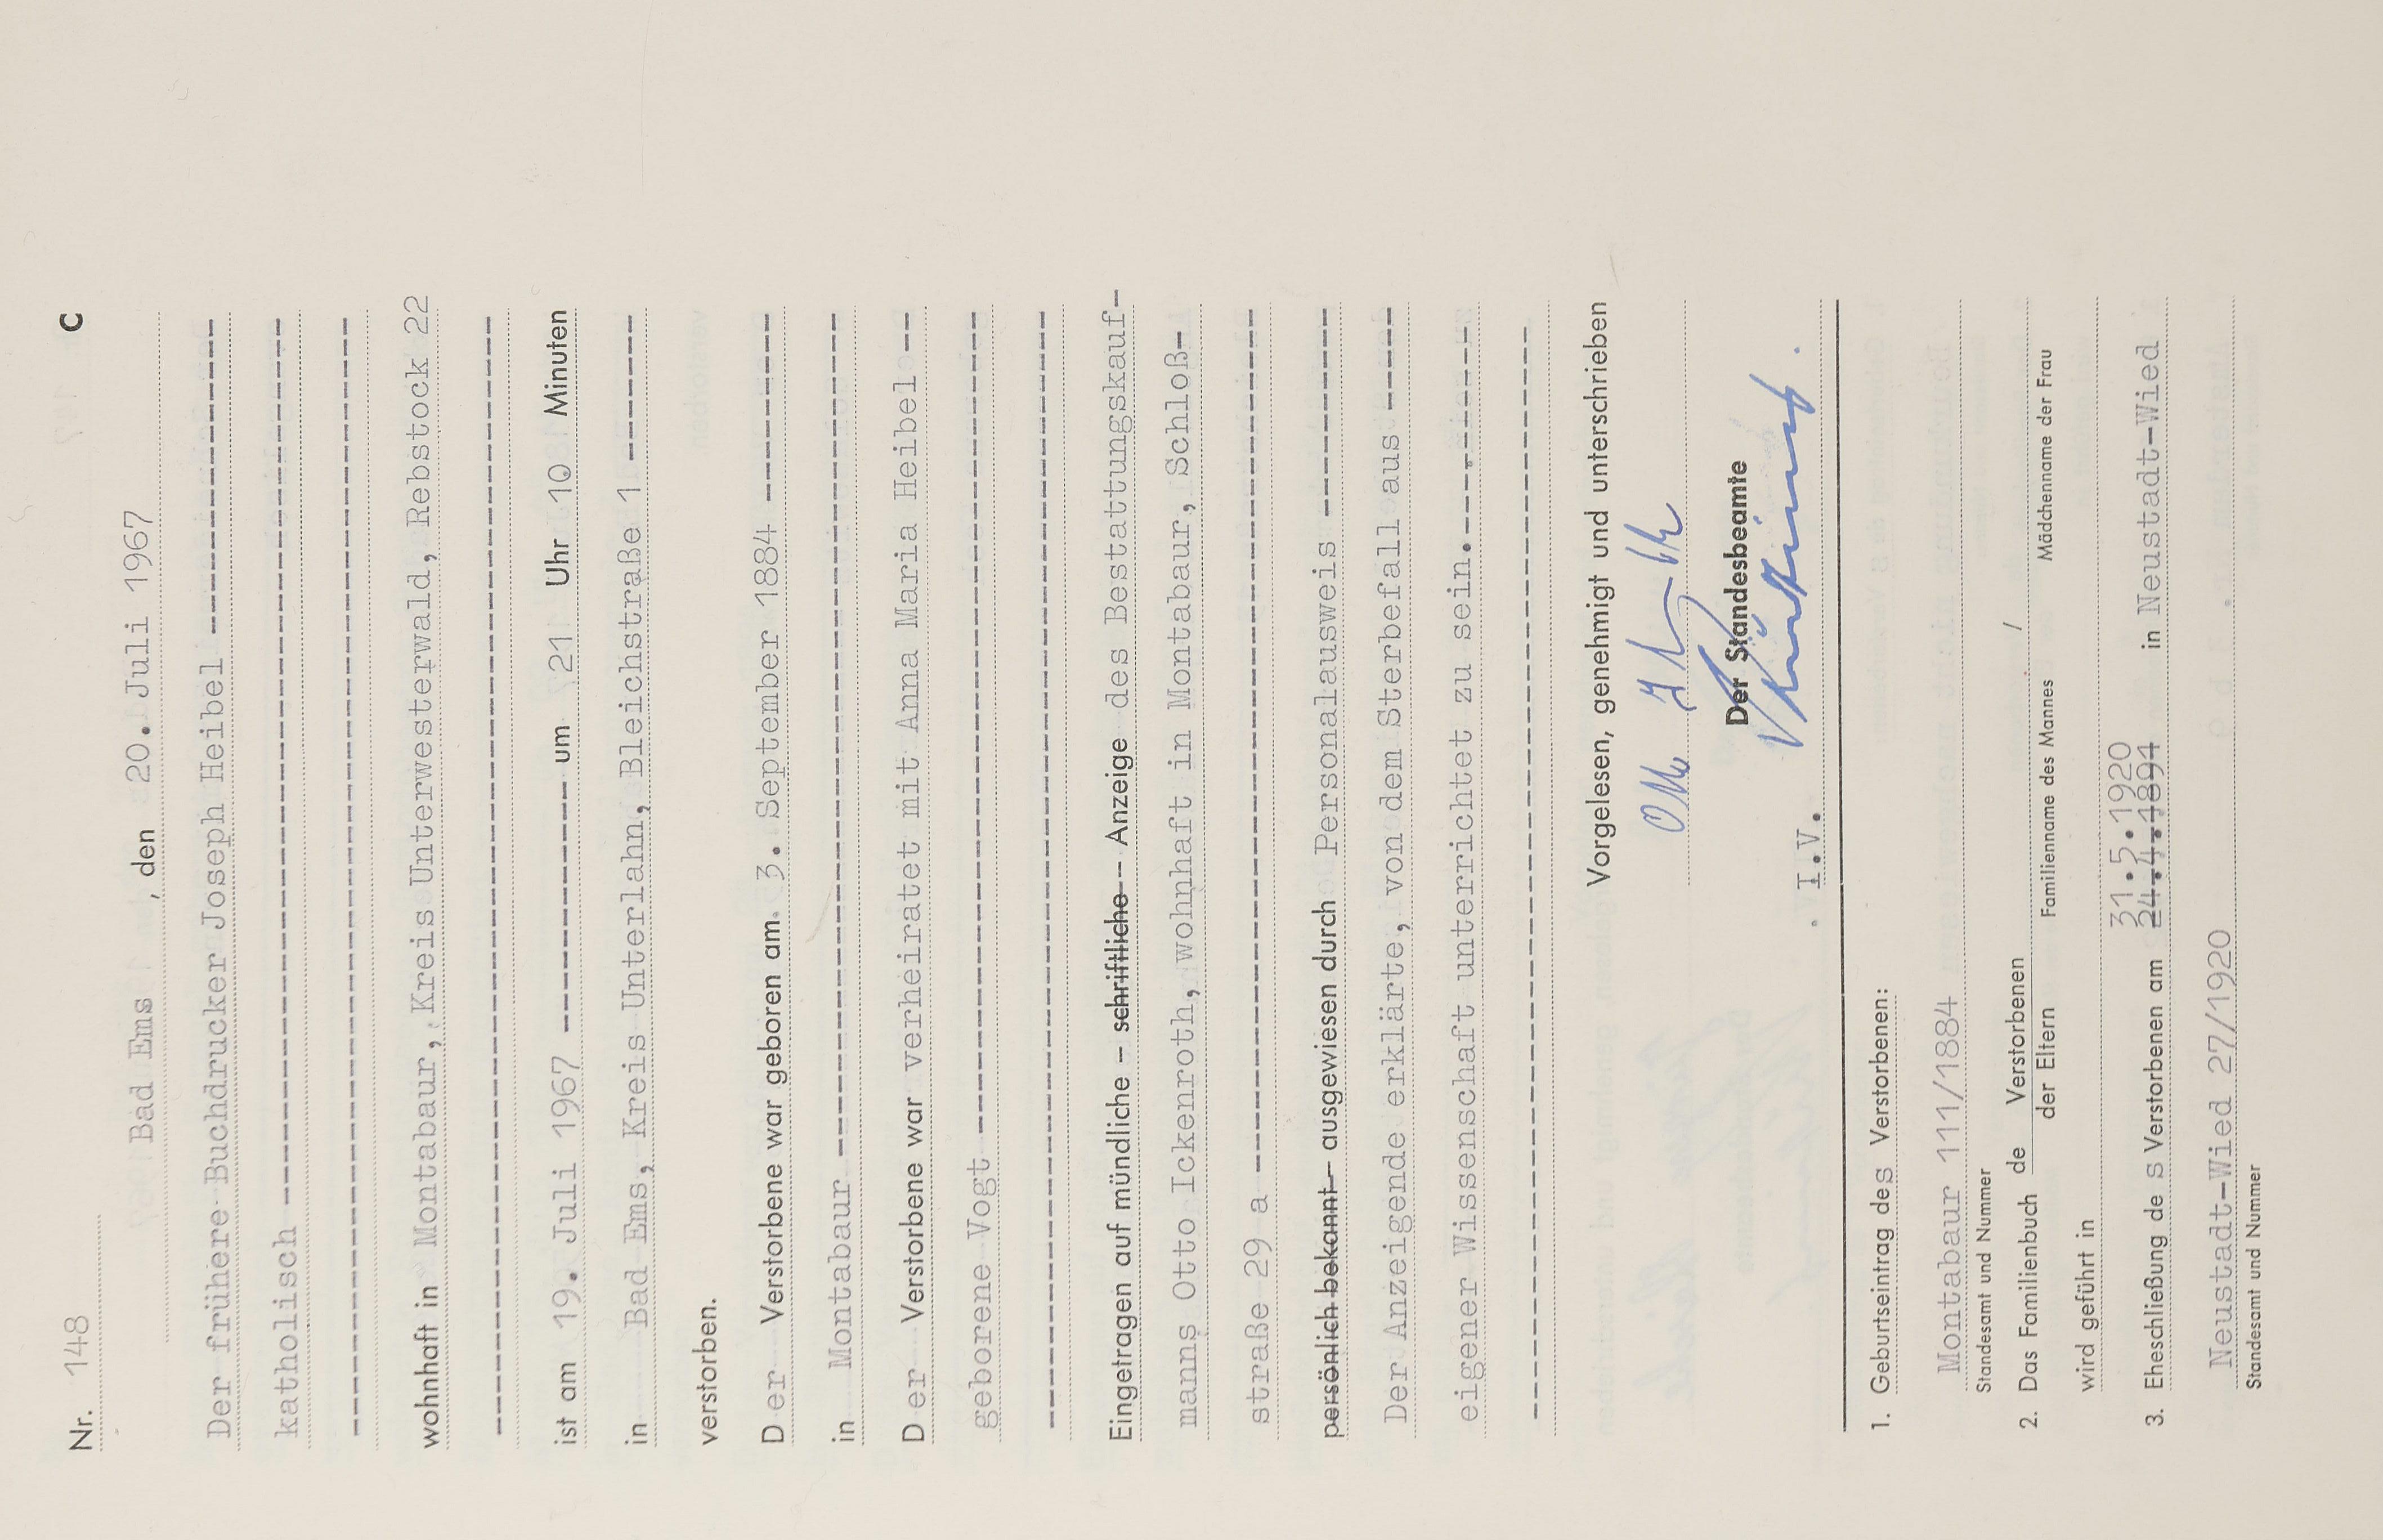 Nr. 148 C
Bad Ems , den 20. Juli 1967
Der frühere Buchdrucker Joseph Heibel
katholisch
wohnhaft in Montabaur, Kreis Unterwesterwald, Rebstock 22
ist am 19. Juli 1967 um 21 Uhr 10 Minuten
in Bad Ems, Kreis Unterlahn, Bleichstraße 1
verstorben.
Der Verstorbene war geboren am 3. September 1884
in Montabaur
Der Verstorbene war verheiratet mit Anna Maria Heibel
geborene Vogt
Eingetragen auf mündliche – schriftliche – Anzeige des Bestattungskauf-
manns Otto Ickenroth, wohnhaft in Montabaur, Schloß-
straße 29 a
persönlich bekannt – ausgewiesen durch Personalausweis
Der Anzeigende erklärte, von dem Sterbefall aus
eigener Wissenschaft unterrichtet zu sein.
Vorgelesen, genehmigt und unterschrieben
Otto
Der Standesbeamte
I.V.
1. Geburtseintrag des Verstorbenen:
Montabaur 111/1884
Standesamt und Nummer
2. Das Familienbuch de Verstorbenen
der Eltern
/
Familienname des Mannes Mädchenname der Frau
wird geführt in
31.5.1920
3. Eheschließung des Verstorbenen am 24.4.1894 in Neustadt-Wied
Neustadt-Wied 27/1920
Standesamt und Nummer